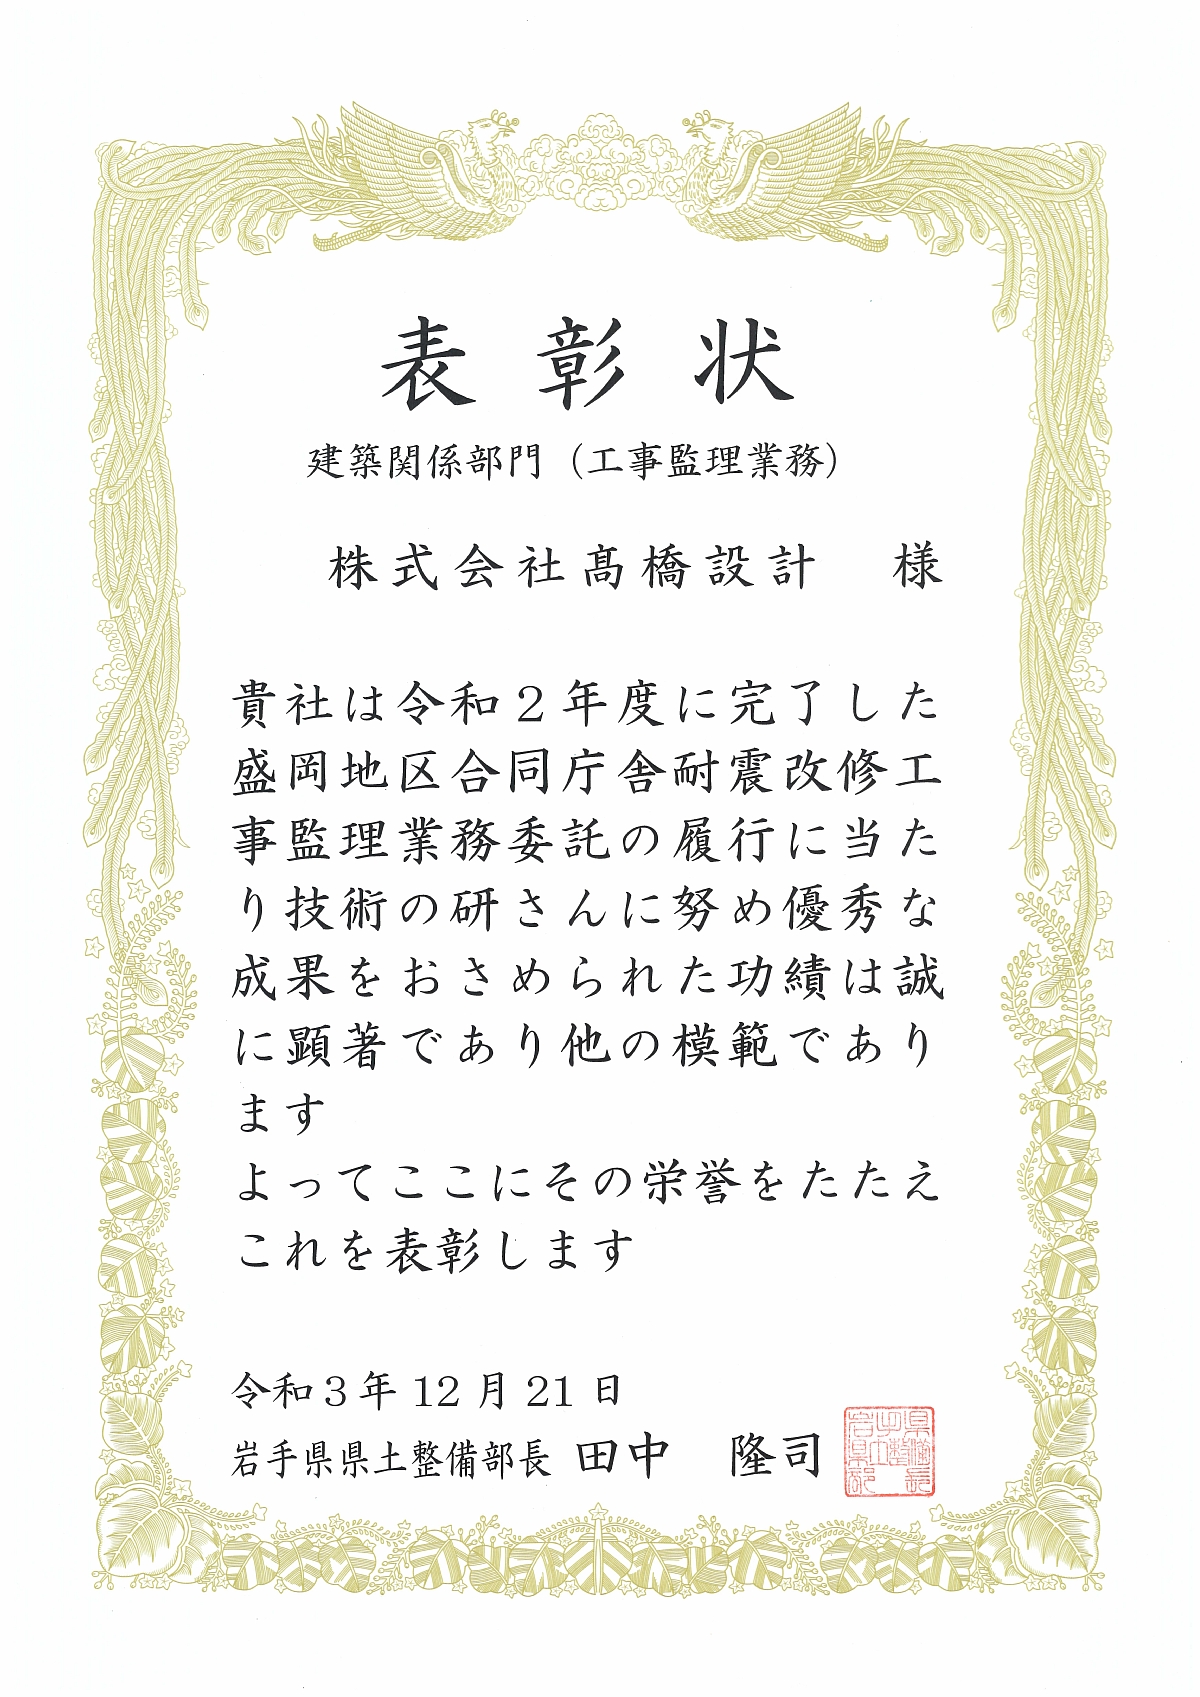 表彰状
建築関係部門（工事監理業務）
株式会社髙橋設計　様
貴社は令和２年度に完了した
盛岡地区合同庁舎耐震改修工
事監理業務委託の履行に当た
り技術の研さんに努め優秀な
成果をおさめられた功績は誠
に顕著であり他の模範であり
ます
よってここにその栄誉をたたえ
これを表彰します
令和３年 12 月 21 日
岩手県県土整備部長 田中　隆司